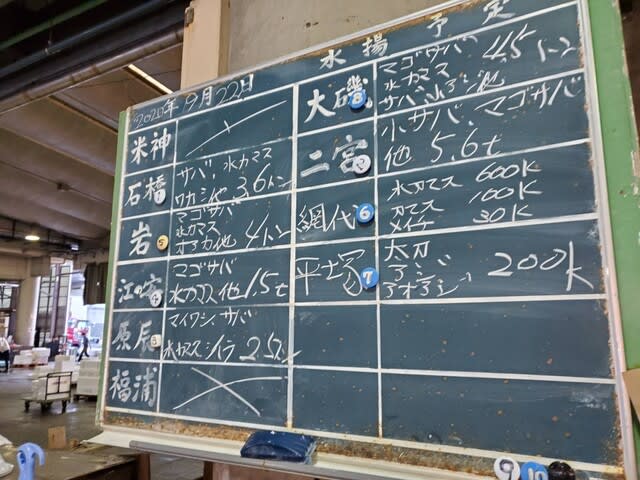 水揚予定
2020年9月22日
米神
石橋
サバ、水カマス
ワカシ他 3.6トン
岩
5
マゴサバ
水カマス
オアカ他 4トン
江の安
マゴサバ
水カマス他 1.5t
原辰
マイワシ、サバ
水カマス シイラ 2.5トン
福浦
大磯
8
マゴサバ
水カマス
サバ、小アジ他 4.5トン
二宮
小サバ、マゴサバ
他 5.6t
網代
6
水カマス 600K
カマス 100K
メイチ 30K
平塚
7
太刀
アジ
アオアジ 200K
9
10